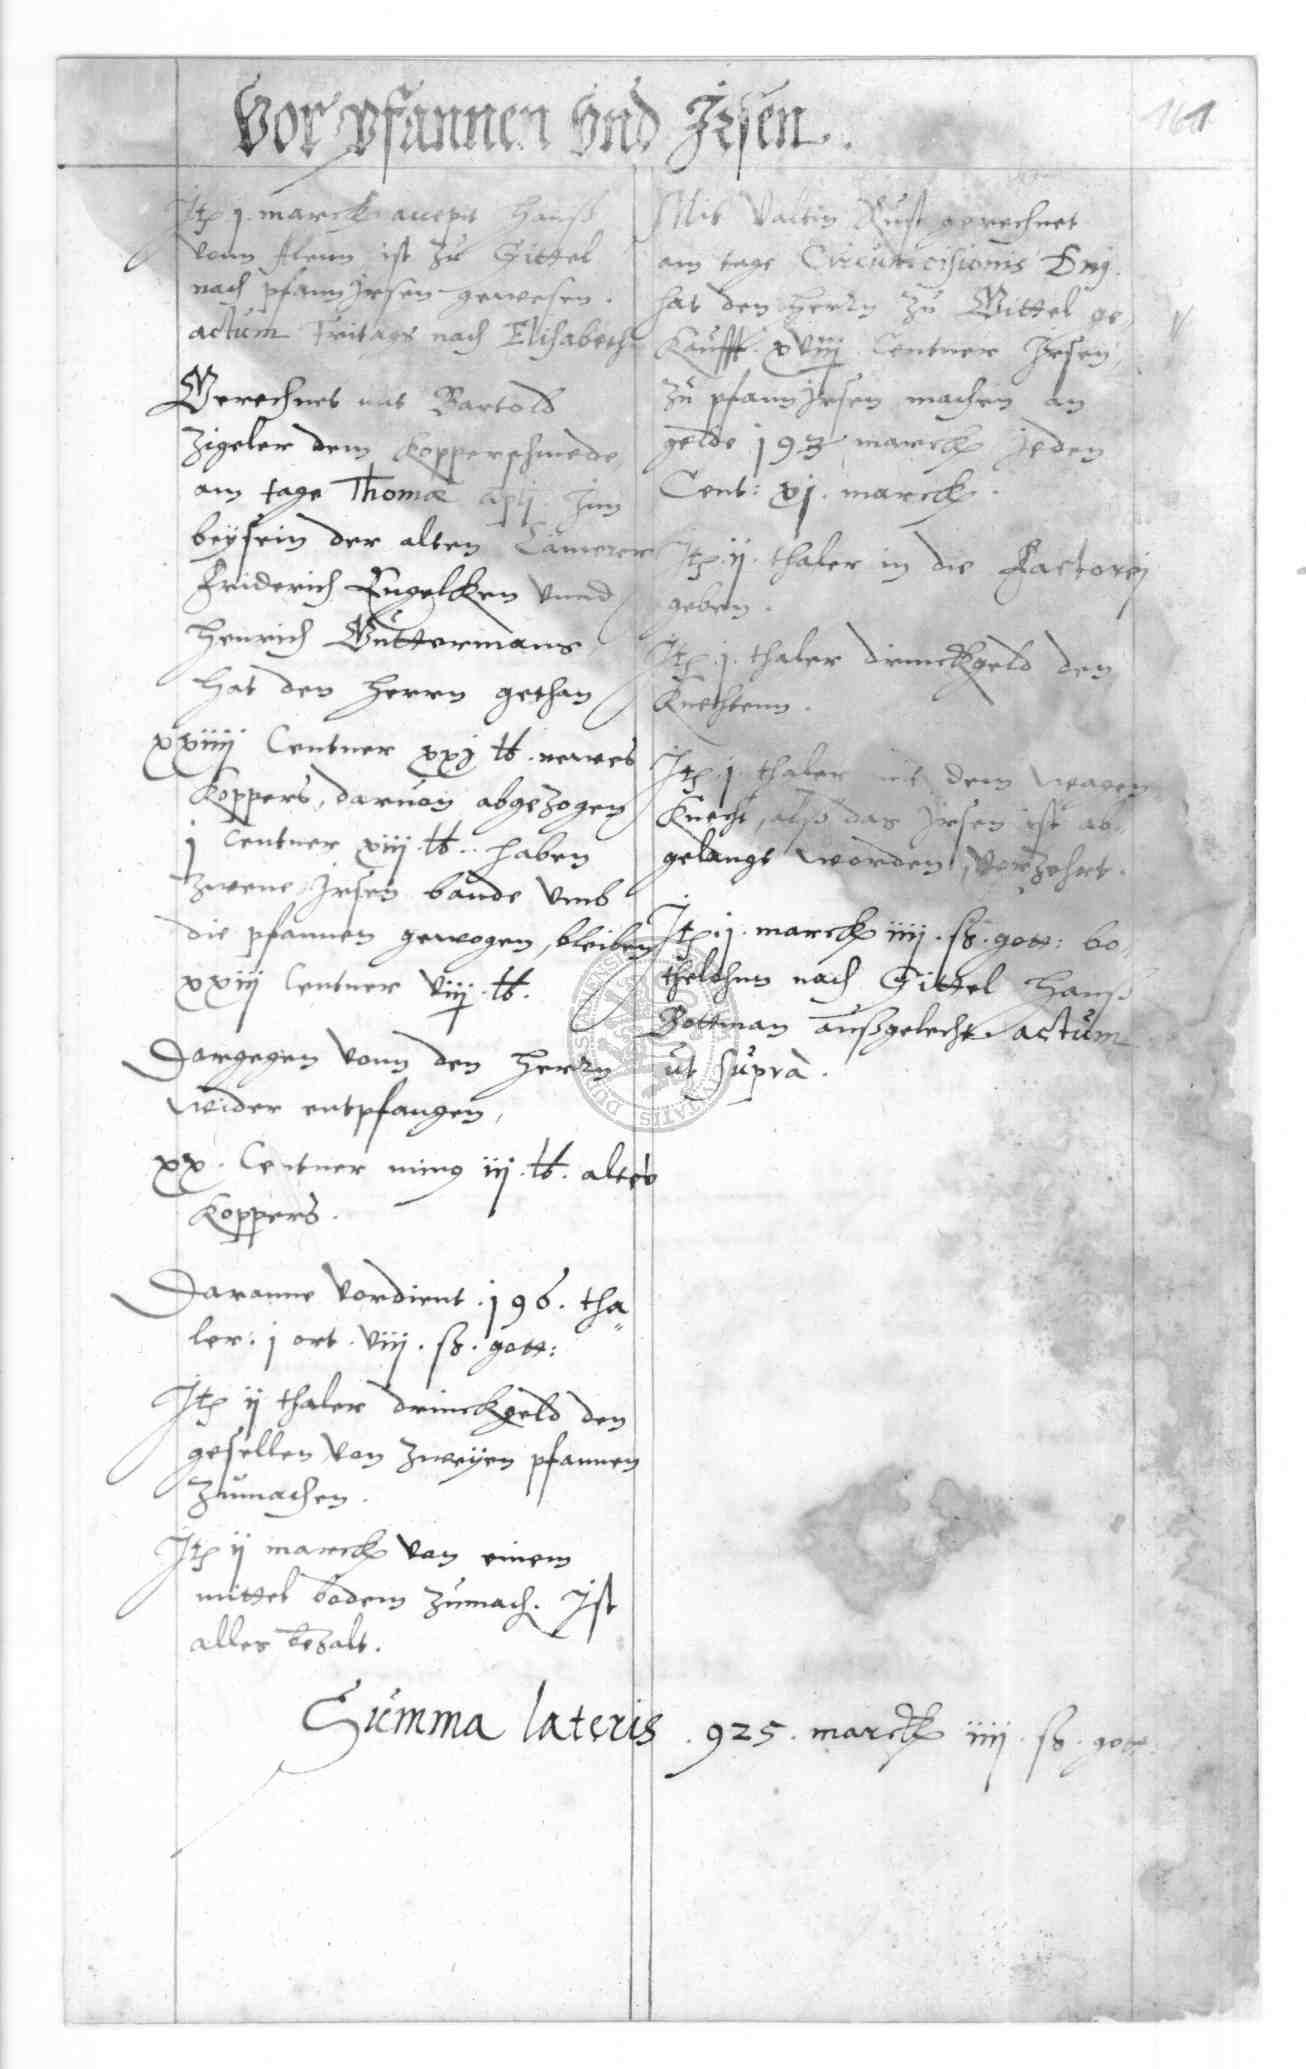 Vor pfannen vnd Jrsen.
161
Jtz j. marck accepit Hanß
vonn Alenn ist zu Gittel
nach pfann Jrsen gewesen.
actum Freitags nach Elisabeth
Gerechnet mit Bartold
Zigeler dem Kopperschmede,
am tage Thomæ aplj. Jnn
beÿsein der alten Cämerer
Friderich Engelken vnnd
Henrich Güttermans
hat den herrn gethan
xxiiij Centner xxj ℔. newes
Koppers, daruon abgezogen
j Centner xiij ℔. haben
zwene Jrsen bande vmb
die pfannen gewogen, bleiben
xxiij Centner viij ℔.
Dargegen vonn den herrn
wider entpfangen,
xx. Centner min9 iij ℔. altes
Koppers.
Daranne vordient .j96. tha„
ler: j ort. viij. ß. gott:
Jtz ij thaler drinckgeld den
gesellen von zweÿen pfannen
zumachen.
Jtz ij marck von einem
mittel bodem zumach. Jst
alles bezalt.
Mit Valtin Rust gerechnet
am tage Circumcisionis Dnj.
hat den herrn zu Gittel ge„
kaufft. xviij Centner Jrsen,
zu pfann Jrsen machen an
gelde j93 marck jeden
Cent: xj. marck.
Jtz. ij. thaler in die Factorej
geben.
Jtz. j. thaler drinckgeld den
Knechtenn.
Jtz. j. thaler mit dem wagen
Knecht, alß das Jrsen ist ab„
gelangt worden, vorzehrt.
Jtz. j. marck iiij. ß. gott: bo„
thelohnn nach Gittel Hanß
Bottman außgelecht actum
ut supra.
Summa lateris .925. marck iiij. ß. gott: